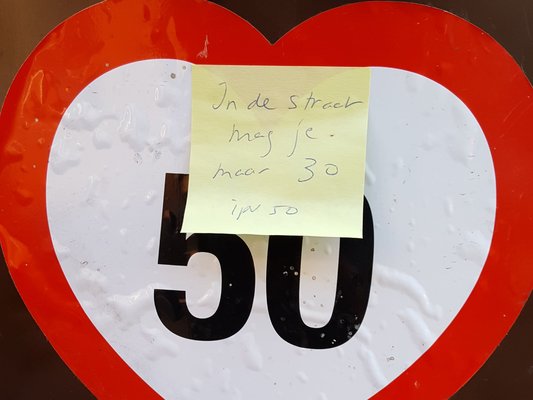 In de straat
mag je.
maar 30
ipv 50
50